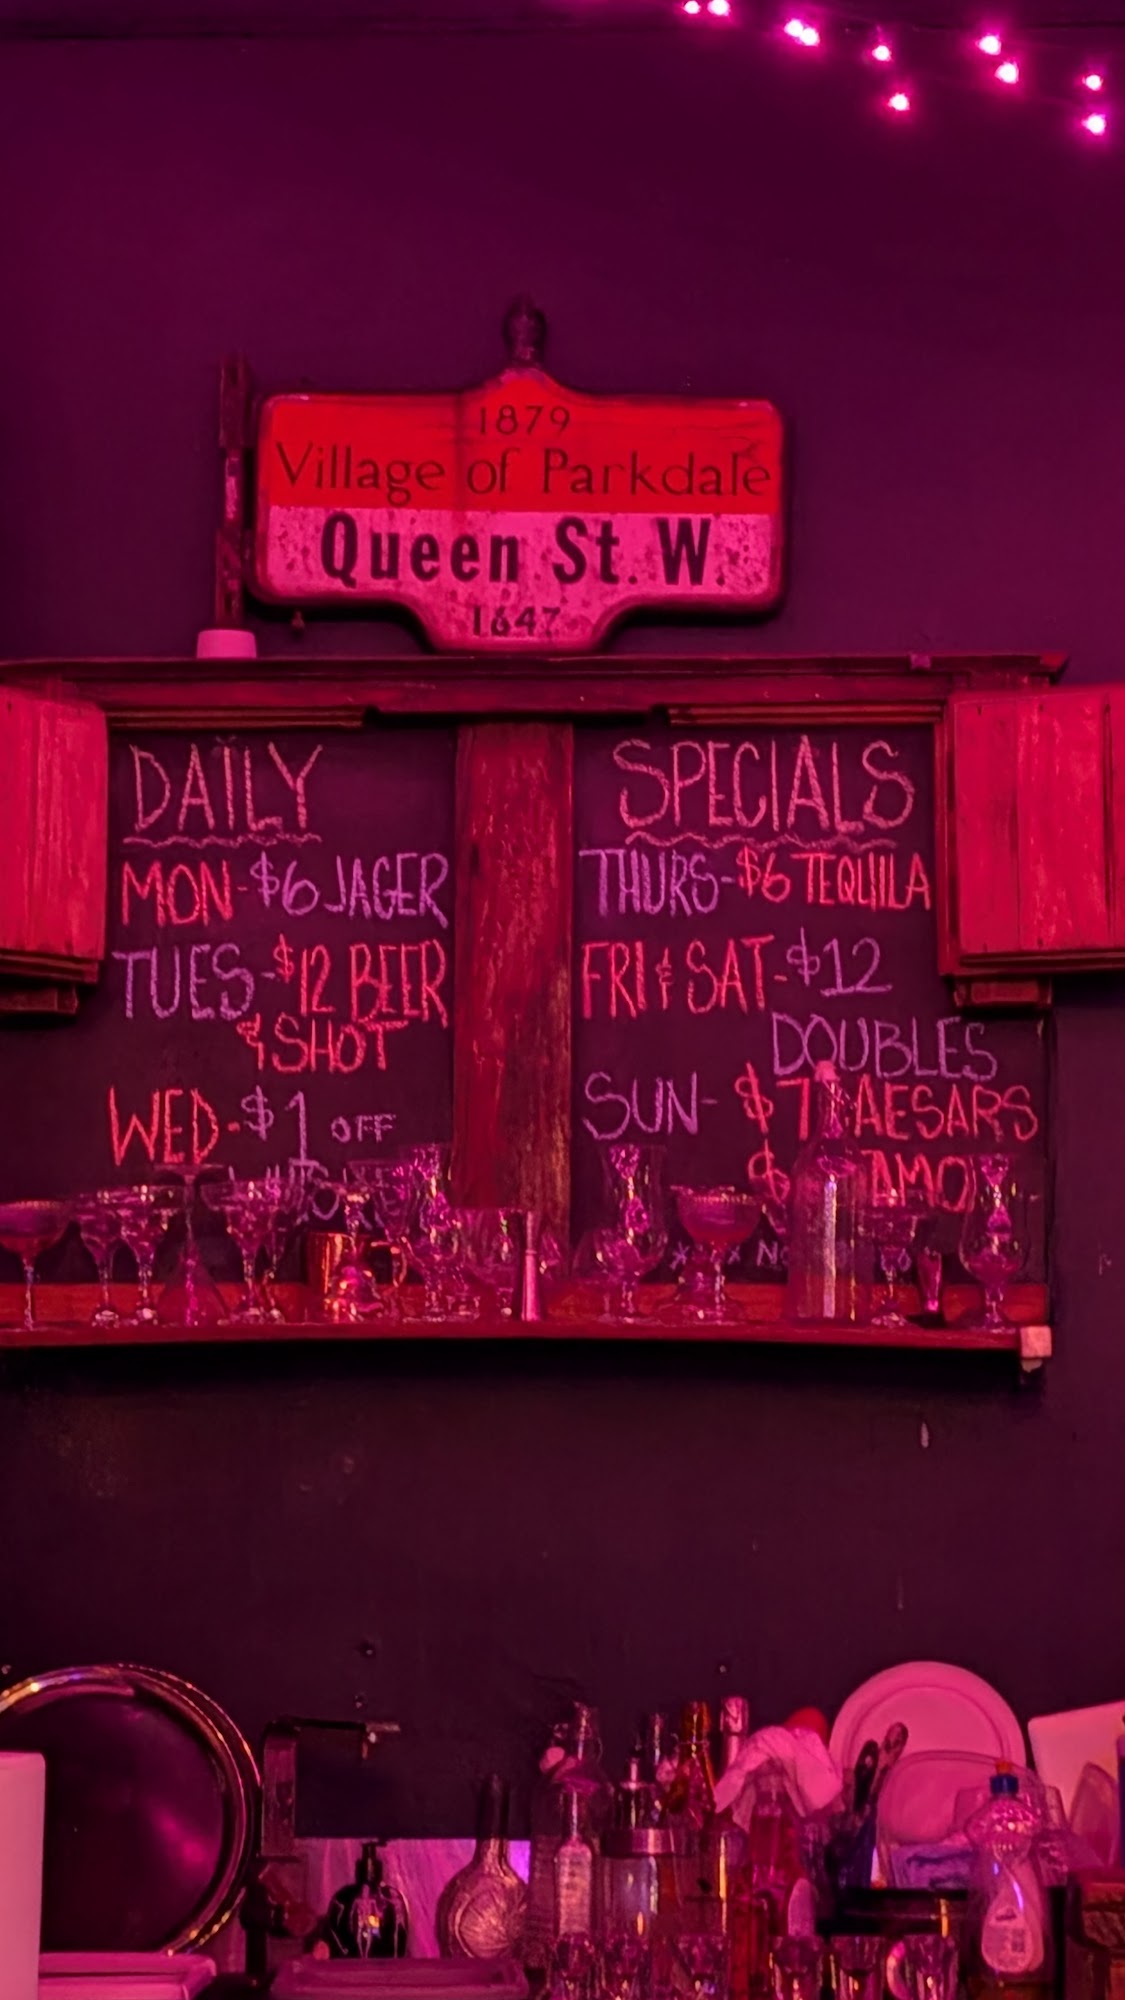 1879
Village of Parkdale
Queen St. W.
1647
DAILY
MON-$6 JAGER
TUES-$12 BEER
& SHOT
WED-$1 OFF
SPECIALS
THURS-$6 TEQUILA
FRI & SAT-$12
DOUBLES
SUN- $7 CAESARS